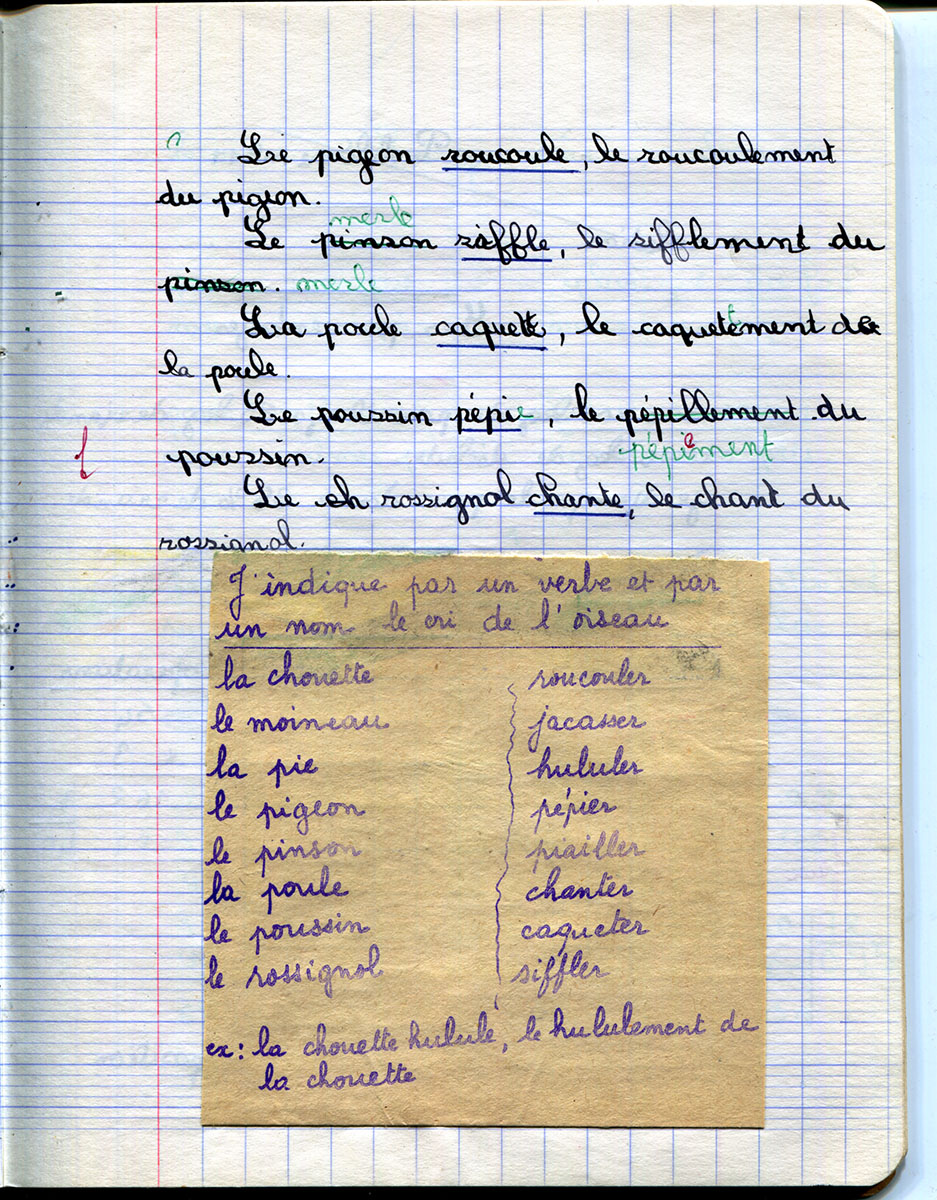 Le pigeon roucoule, le roucoulement
du pigeon.
merle
Le pinson siffle, le sifflement du
pinson. merle
La poule caquette, le caquettement de
la poule.
Le poussin pépie, le pépillement du
poussin. pépiement
Le rossignol chante, le chant du
rossignol.
J'indique par un verbe et par
un nom le cri de l'oiseau
la chouette roucouler
le moineau jacasser
la pie hululer
le pigeon pépier
le pinson piailler
la poule chanter
le poussin caqueter
le rossignol siffler
ex: la chouette hulule, le hululement de
la chouette